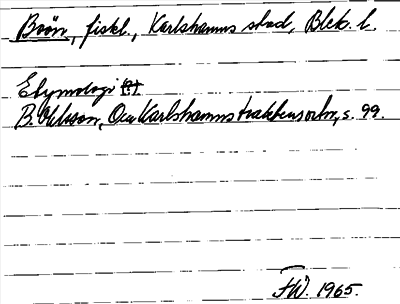 Boön, fiskl., Karlshamns stad, Blek. l.
Etymologi (?)
B. Ohlsson, Om Karlshamnstraktens ortn, s. 99.
FW. 1965.